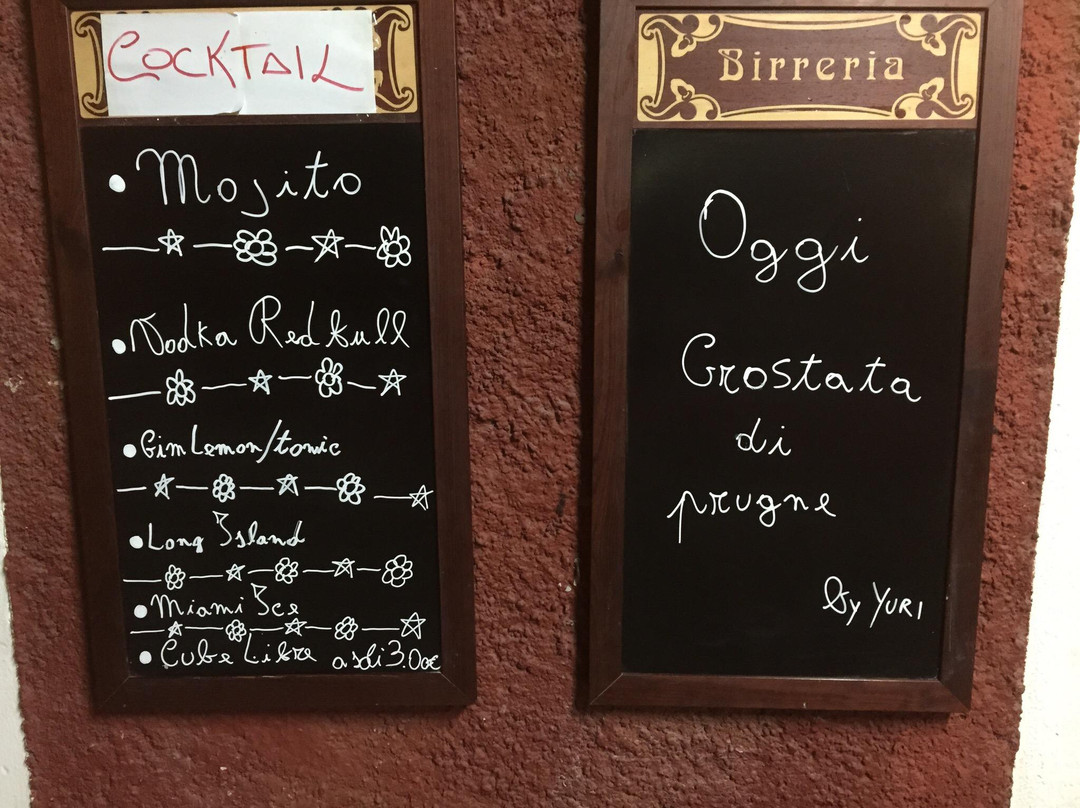 COCKTAIL
• Mojito
• Vodka Redbull
• Gim Lemon/tonic
• Long Island
• Miami Ice
• Cube Libre a soli 3.00€
Birreria
Oggi
Crostata
di
prugne
by YURI